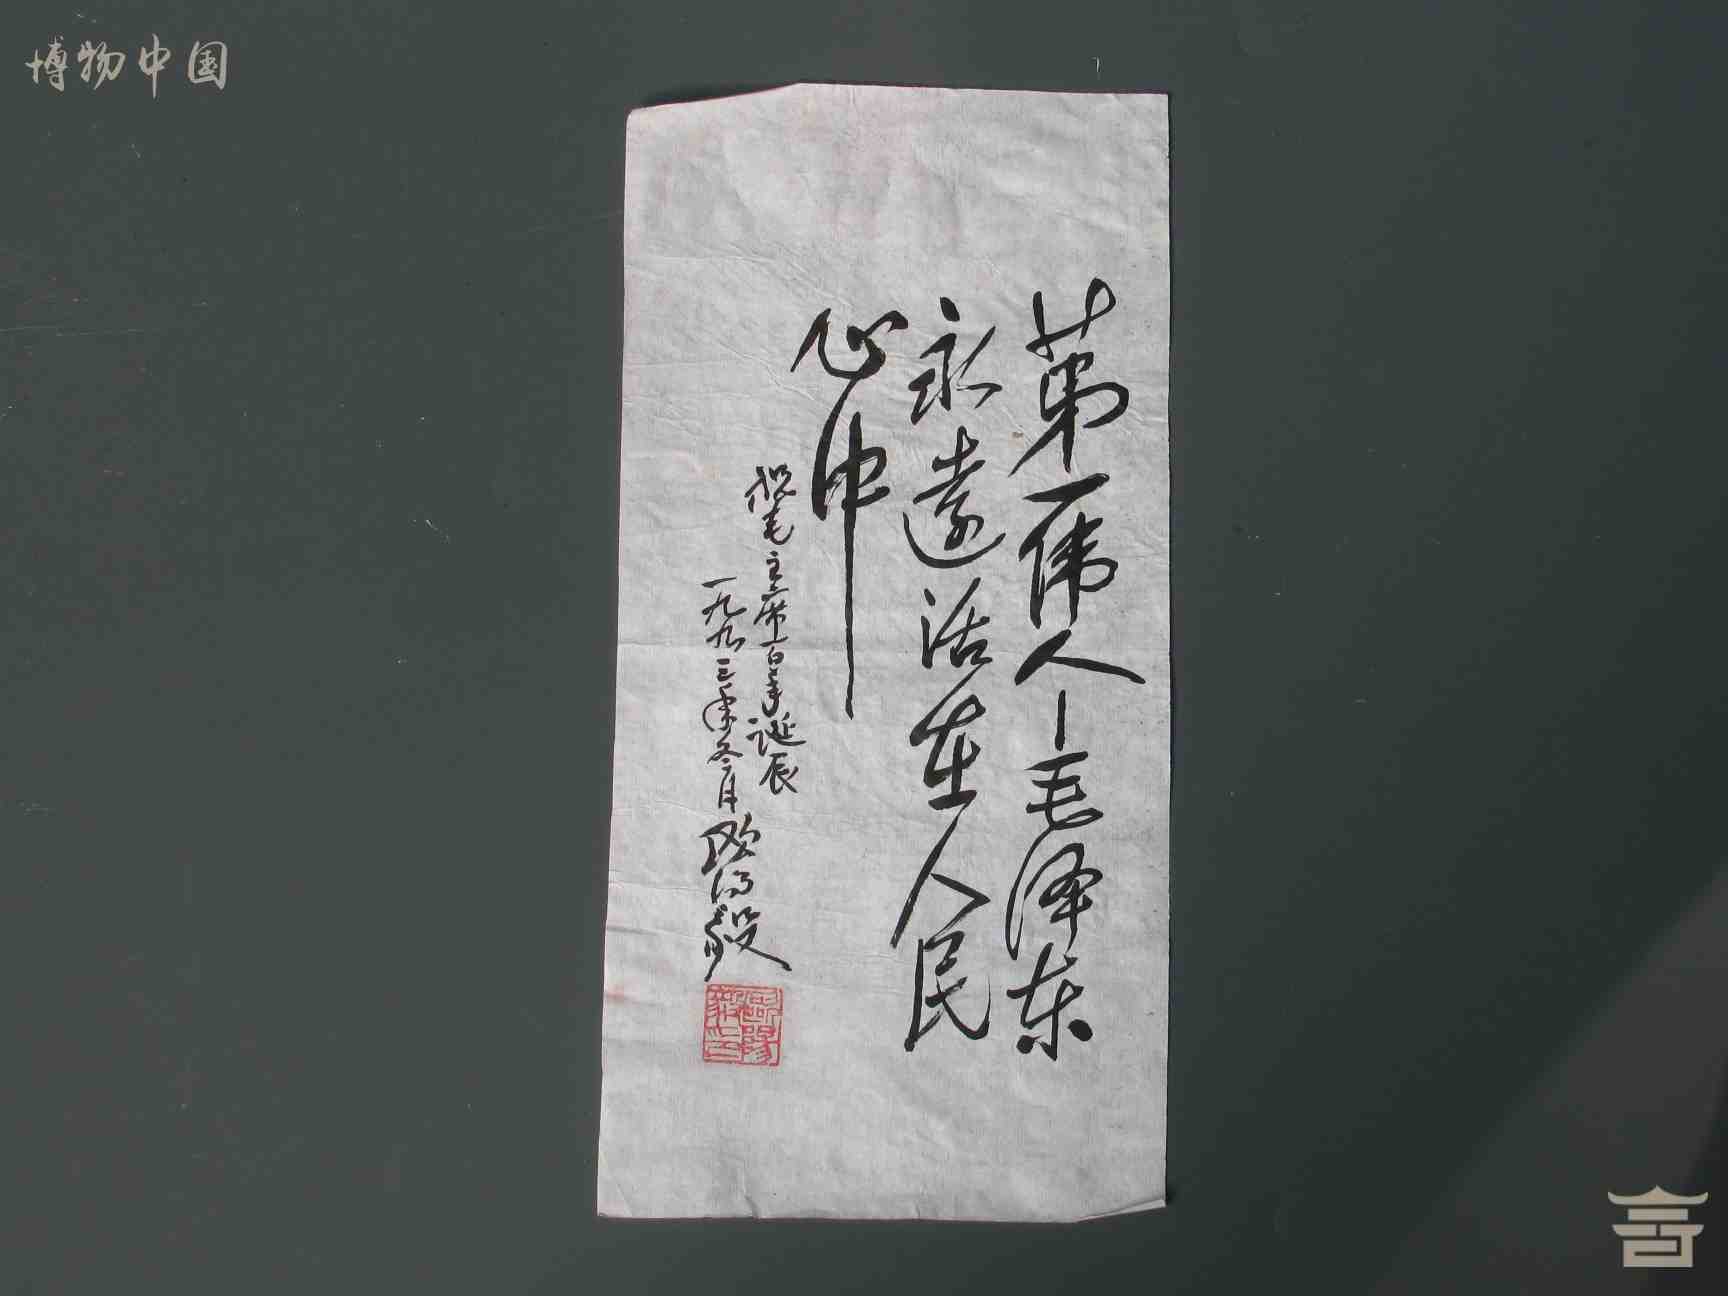 博物中国
第一伟人—毛泽东
永远活在人民
心中
祝毛主席一百年诞辰
一九九三年冬月 欧阳毅